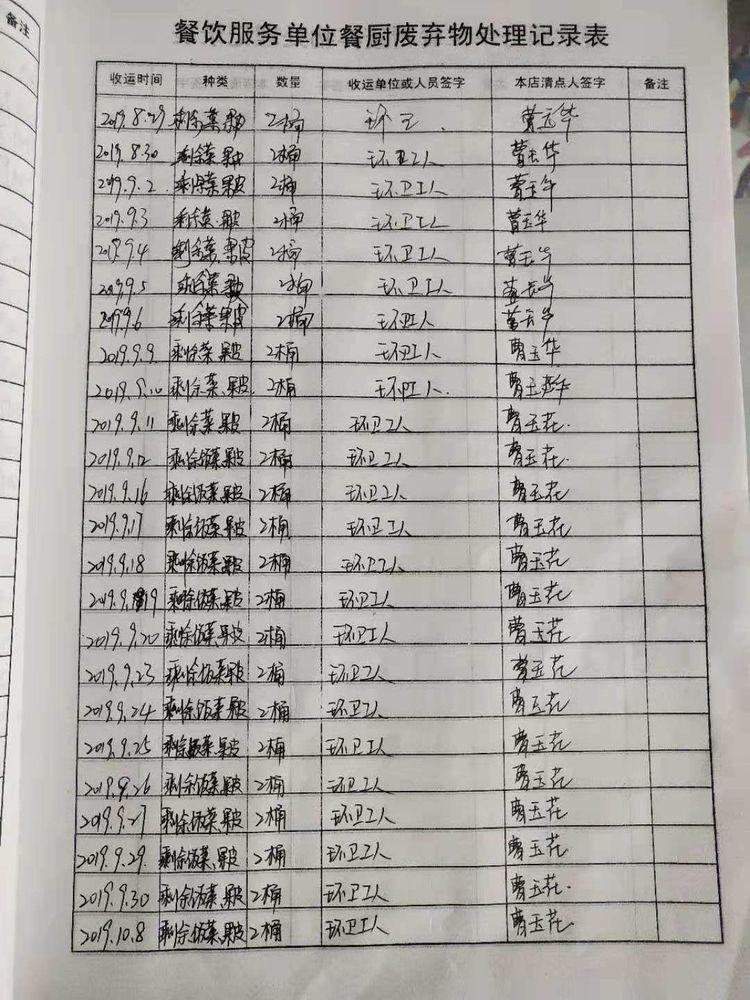 备注
餐饮服务单位餐厨废弃物处理记录表
收运时间 种类 数量 收运单位或人员签字 本店清点人签字 备注
2019.8.29 剩余菜果皮 2桶 环卫 曹玉华
2019.8.30 剩余菜果皮 2桶 环卫工人 曹玉华
2019.9.2 剩余菜果皮 2桶 环卫工人 曹玉华
2019.9.3 剩余菜、果皮 2桶 环卫工人 曹玉华
2019.9.4 剩余菜、果皮 2桶 环卫工人 曹玉华
2019.9.5 剩余菜果皮 2桶 环卫工人 曹玉华
2019.9.6 剩余菜果皮 2桶 环卫工人 曹玉华
2019.9.9 剩余菜、果皮 2桶 环卫工人 曹玉华
2019.9.10 剩余菜、果皮 2桶 环卫工人. 曹玉华
2019.9.11 剩余菜、果皮 2桶 环卫工人 曹玉花.
2019.9.12 剩余饭菜、果皮 2桶 环卫工人 曹玉花.
2019.9.16 剩余饭菜、果皮 2桶 环卫工人 曹玉花
2019.9.17 剩余饭菜、果皮 2桶 环卫工人 曹玉花
2019.9.18 剩余饭菜、果皮 2桶 环卫工人 曹玉花
2019.9.19 剩余饭菜、果皮 2桶 环卫工人 曹玉花
2019.9.20 剩余饭菜、果皮 2桶 环卫工人 曹玉花
2019.9.23 剩余饭菜、果皮 2桶 环卫工人 曹玉花
2019.9.24 剩余饭菜、果皮 2桶 环卫工人 曹玉花
2019.9.25 剩余饭菜、果皮 2桶 环卫工人 曹玉花
2019.9.26 剩余饭菜、果皮 2桶 环卫工人 曹玉花
2019.9.27 剩余饭菜、果皮 2桶 环卫工人 曹玉花
2019.9.29. 剩余饭菜、果皮 2桶 环卫工人 曹玉花
2019.9.30 剩余饭菜、果皮 2桶 环卫工人 曹玉花.
2019.10.8 剩余饭菜、果皮 2桶 环卫工人 曹玉花